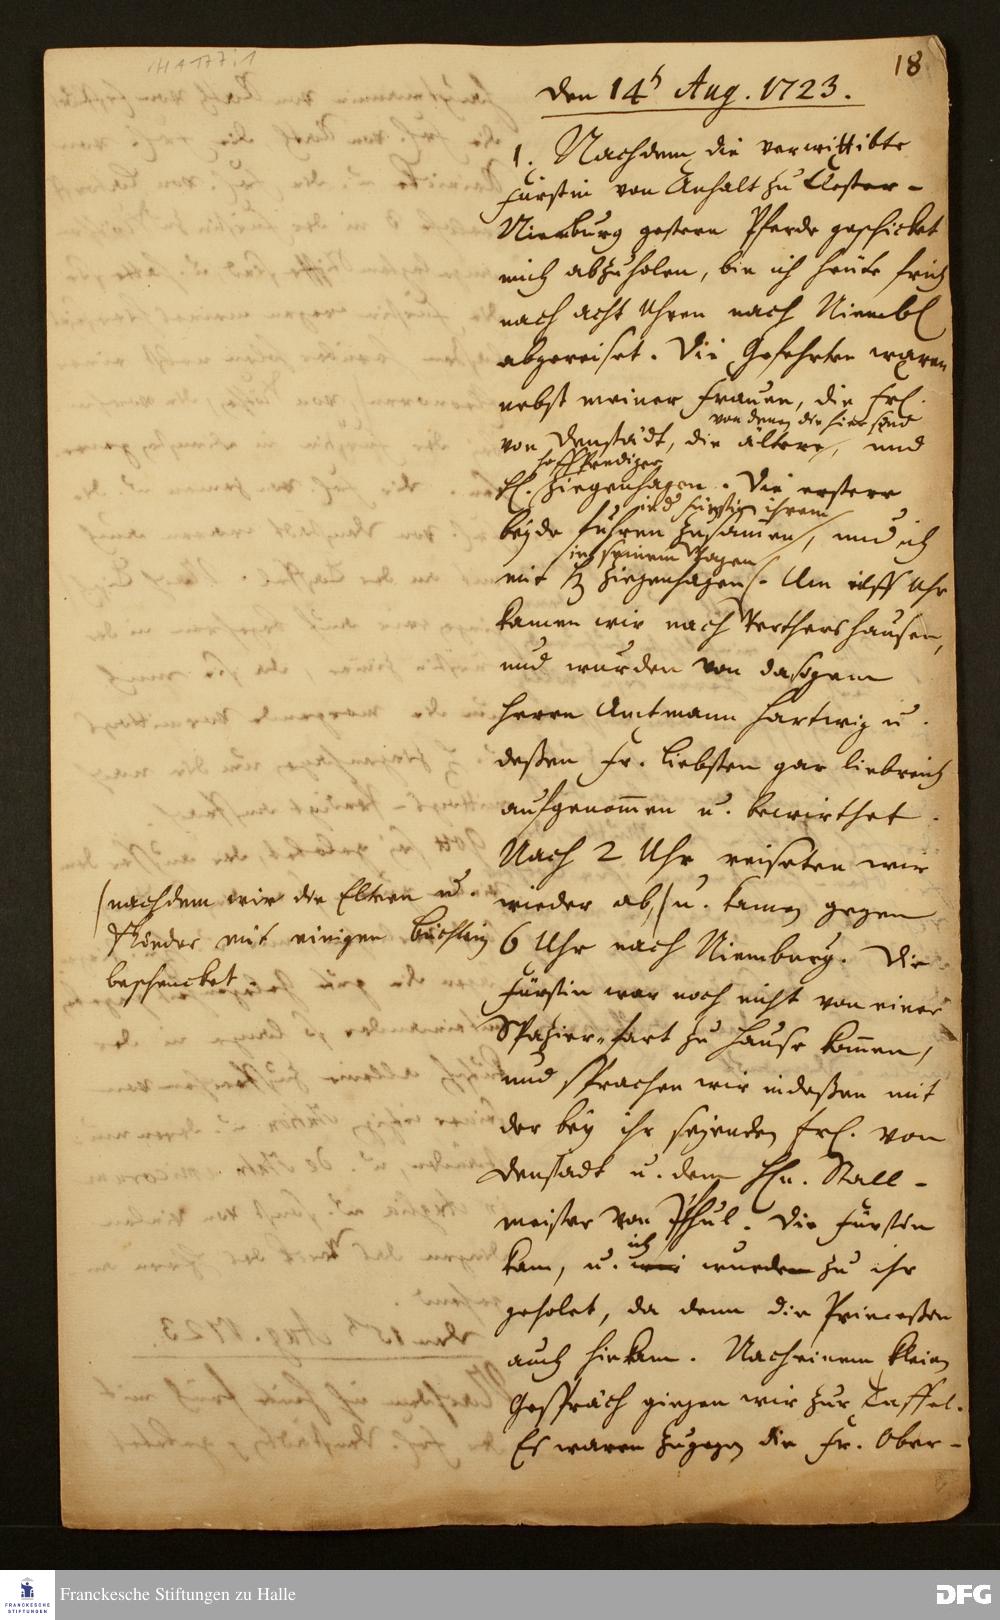 18
den 14t Aug. 1723.
1. Nachdem die verwittibte
Fürstin von Anhalt zu
Niemburg gestern Pferde geschicket
mich abzuholen, bin ich heute früh
nach acht Uhren nach Niemb.
abgereiset. Die Gefehrten waren
nebst meiner Frauen, die Frl.
von denen die hier sind
von Denstädt, die ältere, und
Hoffprediger
H. Ziegenhagen. Die erstere
beyde fuhren zusamen, und ich
in seinem Wagen
mit H. Ziegenhagen. Um eilff Uhr
kamen wir nach Werthershausen,
und wurden von dasigem
Herrn Amtmann Hartwig u.
deßen Fr. Liebsten gar liebreich
aufgenommen u. bewirthet.
Nach 2 Uhr reiseten wir
wieder ab, u. kamen gegen
(nachdem wir die Eltern u.
Kinder mit einigen Büchlein
beschencket.
6 Uhr nach Niemburg. Die
Fürstin war noch nicht von einer
Spazier-fart zu Hause kommen,
und sprachen wir indeßen mit
der bey ihr seyenden Frl. von
Denstadt u. dem Hn. Stall-
meister von Pfhul. Die Fürstin
ich
kam, u. wir wurden zu ihr
geholet, da denn die Princeßin
auch hinkam. Nach einem kleinen
Gespräch giengen wir zur Taffel.
Es waren zugegen die Fr. Ober-
Franckesche Stiftungen zu Halle
FRANCKESCHE
STIFTUNGEN
DFG